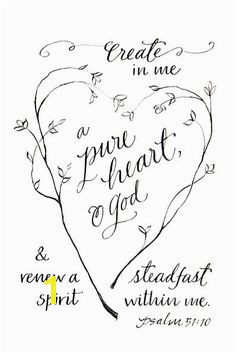 Create
in me
a
pure
heart,
O god
&
renew a
spirit
steadfast
within me.
Psalm 51:10
1